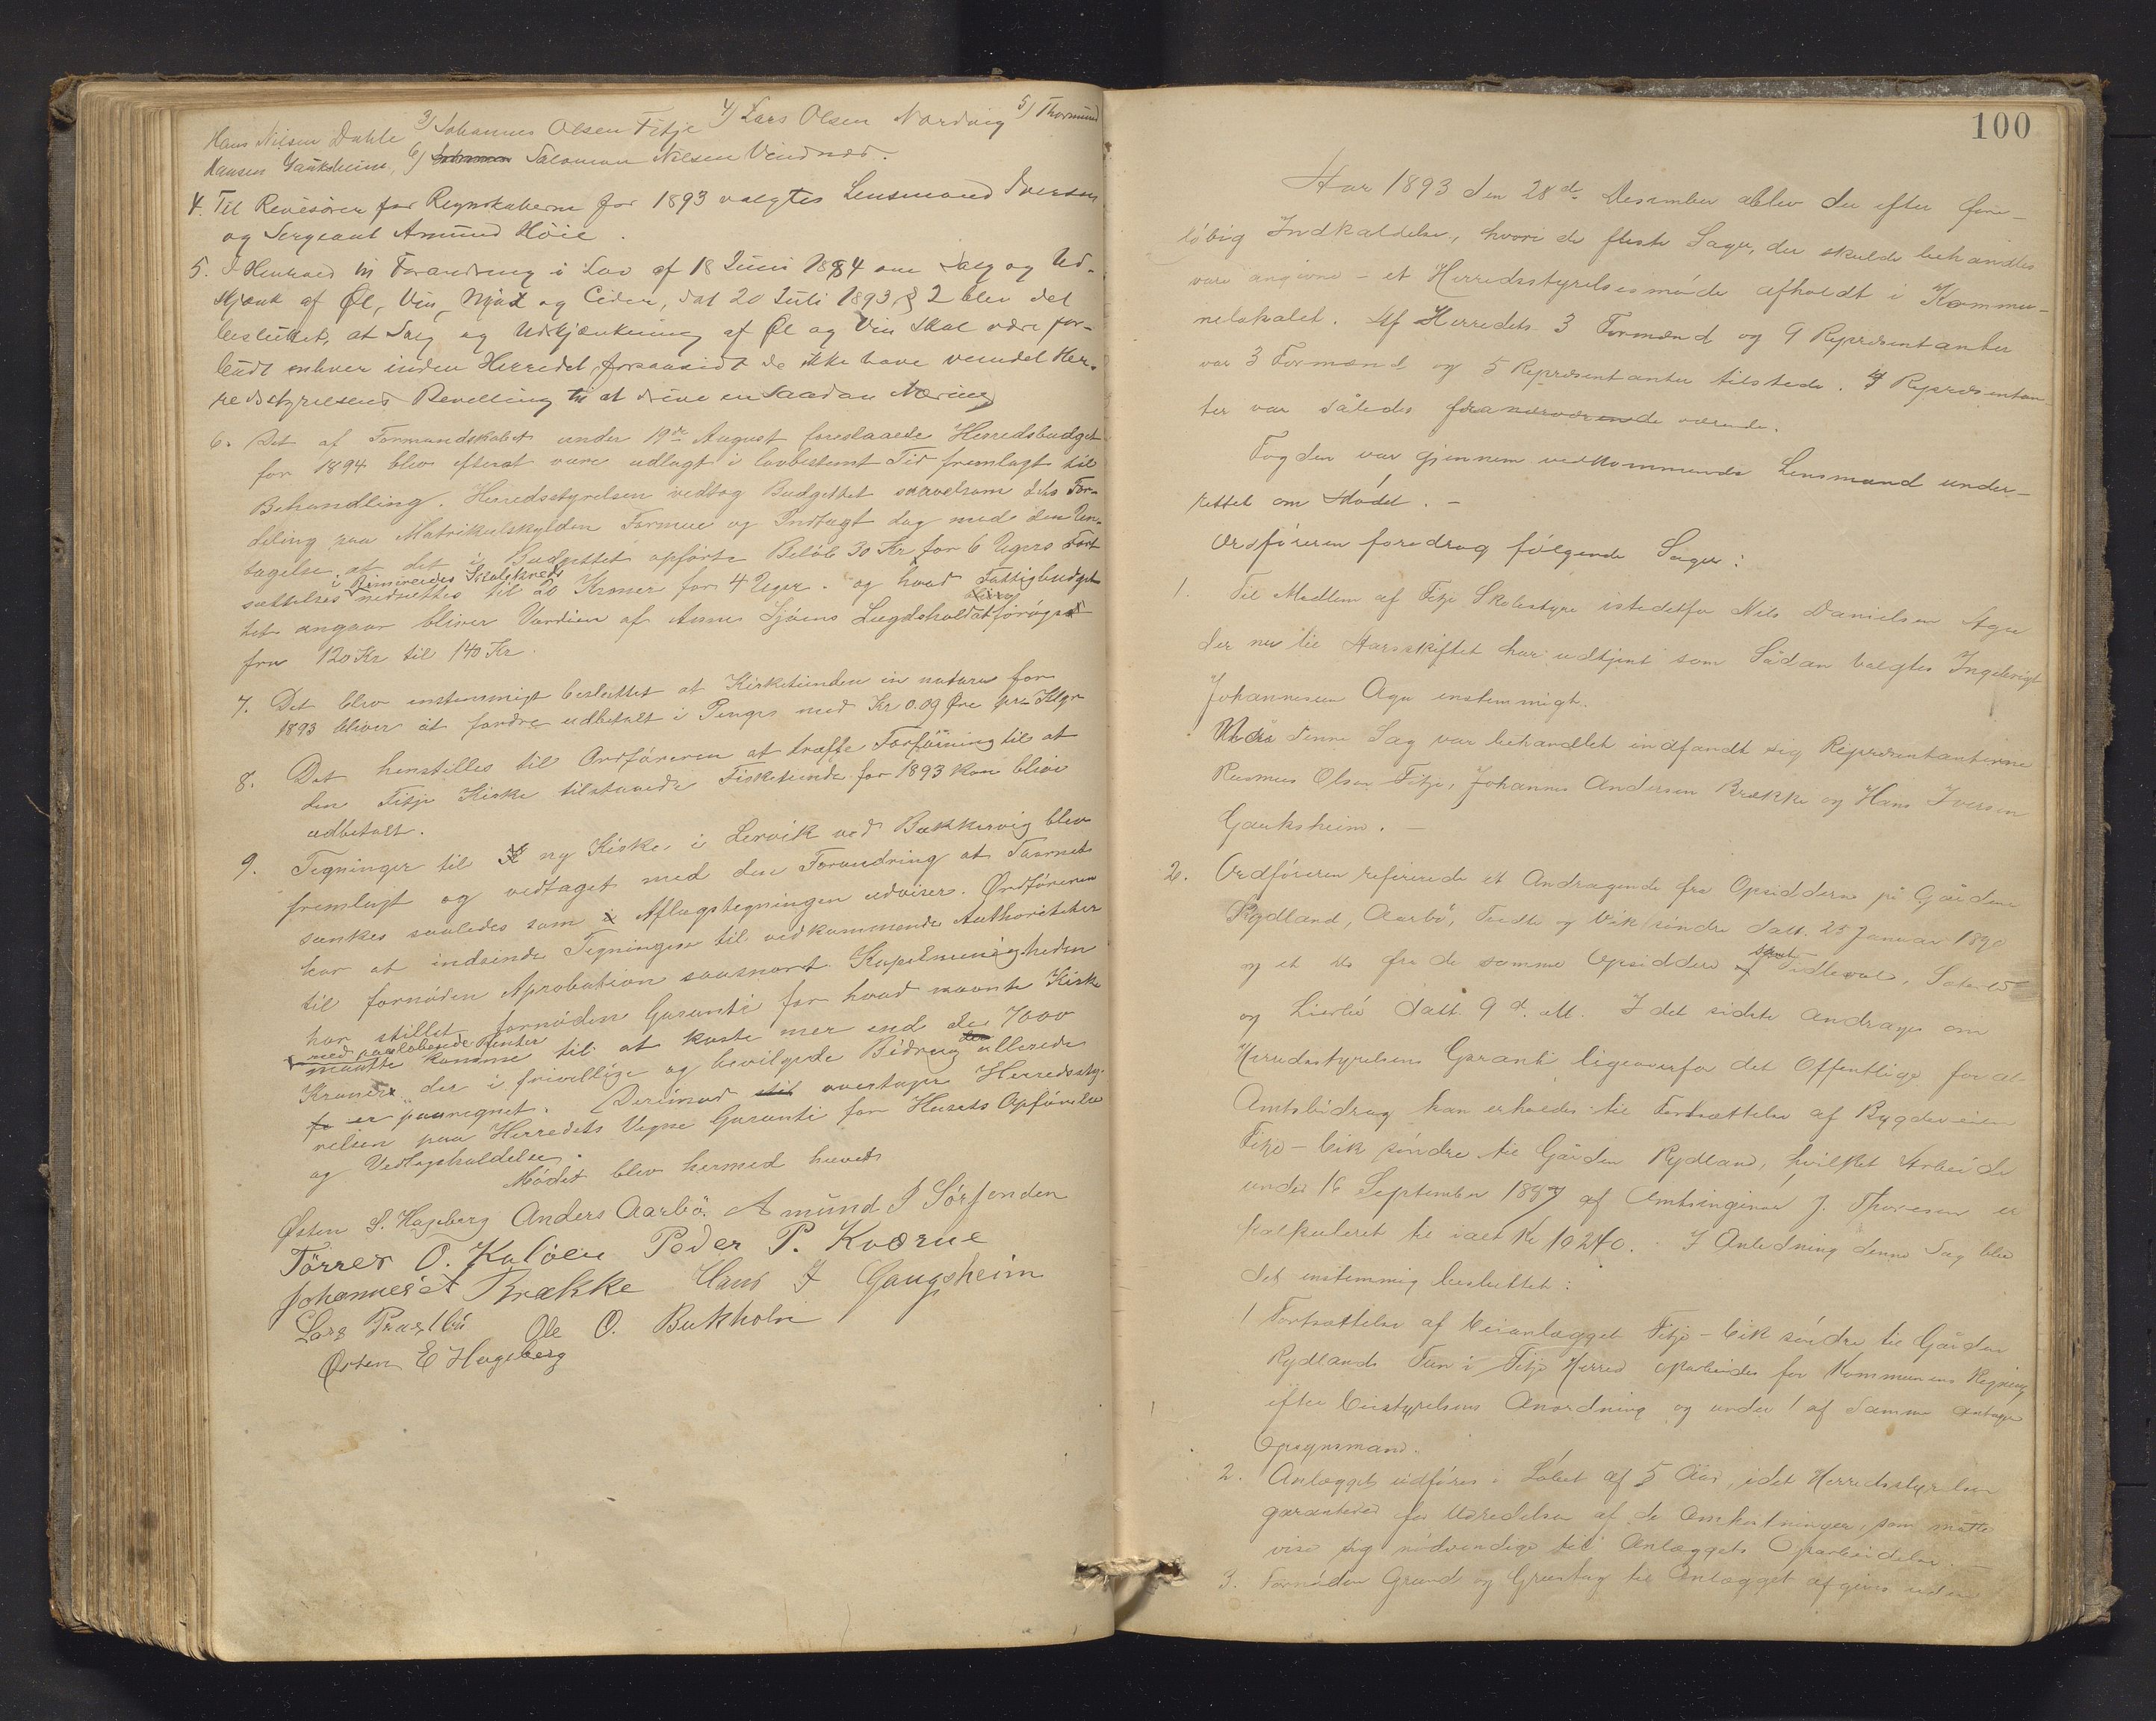 Hans Nilsen Dahle 3) Johannes Olsen Fitje 4) Lars Olsen Nordvig 5) Thormund
Hansen Gauksheim, 6) Salomon Nilsen Vendnes.
4. Til Revisorer for Regnskaberne for 1893 valgtes Lensmand Iversen
og Sergeant Amund Höie.
5. I Henhold til Forandring i Lov af 18 Juni 1884 om Salg og Ud-
skjænk af Øl, Vin, Mjød og Cider, dat 20 Juli 1893 § 2 blev det
besluttet, at Salg og Udskjænkning af Øl og Vin skal være for-
budt enhver inden Herredet, forsaavidt de ikke have vundet Her-
redsstyrelsens Bevilling til at drive en saadan Næring
6. Det af Formandskabet under 19de August foreslaaede Herredsbudget
for 1894 blev efterat være udlagt i lovbestemt Tid fremlagt til
Behandling. Herredsstyrelsen vedtog Budgettet saavelsom dets For-
deling paa Matrikulskylden Formue og Indtægt dog med den Und-
tagelse, at det i Budgettet opførte Beløb 30 Kr for 6 Ugers Fort
i Rimereides Skolekreds
sættelses nedsættes til 20 Kroner for 4 Uger. og hvad Fattigbudget
tet angaar bliver Værdien af Annes Lægdshold at forøges
fra 120 Kr til 140 Kr.
7. Det blev enstemmigt besluttet at Kirketienden in natura for
1893 bliver at fordre udbetalt i Penge med Kr 0.09 Øre pr. Klgr
8. Det henstilles til Ordföreren at træffe Forföining til at
den Fitje Kirke tilstaaede Fisketiende for 1893 kan blive
udbetalt.
9. Tegninger til K ny Kirke i Lervik ved Bakkervig blev
fremlagt og vedtaget med den Forandring at Taarnet
sænkes saaledes som i Aflægstegningen udvises. Ordföreren
har at indsende Tegningen til vedkommende Authoriteter
til fornöden Aprobation saasnart Kapelmenigheden
har stillet fornöden Garanti for hvad nævnte Kirke
med paaløbende Renter
maatte komme til at koste mer end de 7000
Kroner, der i frivillige og bevilgede Bidrag allerede
er paaregnet. Derimod til overtager Herredssty-
relsen paa Herredets Vegne Garanti for Husets Opförelse
og Vedligeholdelse.
Mödet blev hermed hævet
Østen S. Hageberg Anders Aarbö. Amund J Sörfonden
Törres O. Kalöen Peder P. Kværne
Johannes A Brække Hans J Gaugsheim
Lars Præstbö Ole O. Bukholm
Østen E Hageberg
100
Aar 1893 den 28de Desember ablev der efter fore-
löbig Indkaldelse, hvori de fleste Sager, der skulde behandles
vare angivne - et Herredsstyrelsesmöde afholdt i Kommu-
nelokalet. Af Herredets 3 Formænd og 9 Repræsentanter
var 3 Formænd og 5 Repræsentanter tilstede. 4 Repræsentan
ter var således fraværende værende.
Fogden var gjennem vedkommende Lensmand under-
rettet om Mödet. -
Ordföreren foredrog fölgende Sager:
1. Til Medlem af Fitje Skolestyre istedetfor Nils Danielsen Aga
der nu til Aarsskiftet har udtjent som Sådan valgtes Ingebrigt
Johannesen Aga enstemmigt.
denne Sag var behandlet indfandt sig Repræsentanterne
Rasmus Olsen Fitje, Johannes Andersen Brække og Hans Iversen
Gauksheim. -
2. Ordföreren refererede et Andragende fra Opsidderne på Gårdene
Rydland, Aarbö, Tveite og Vik söndre datt. 25 Januar 1890
og et do fra de samme Opsiddere samt Sætervold
og Lierbö datt. 9 d. alt. I det sidste andrages om
Herredsstyrelsens Garanti ligeoverfor det Offentlige for at
Amtsbidrag kan erholdes til Fortsættelse af Bygdeveien
Fitje - Vik söndre til Gården Rydland, hvilket Arbeide
under 16 September 1889 af Amtsingeniör J. Thoresen er
kalkuleret til ialt Kr 10240. I Anledning denne Sag blev
det enstemmig besluttet:
1 Fortsættelse af Veianlægget Fitje - Vik söndre til Gården
Rydlands Tun i Fitje Herred oparbeides for Kommunens Regning
efter Veistyrelsens Anordning og under 1 af Samme antagen
Opsynsmand.
2. Anlægget udföres i Löbet af 5 Aar, idet Herredsstyrelsen
garanterer for Udredelse af de Omkostninger, som måtte
vise sig nödvendige til Anlæggets Oparbeidelse. -
3. Fornöden Grund og Grustag til Anlægget afgives uden